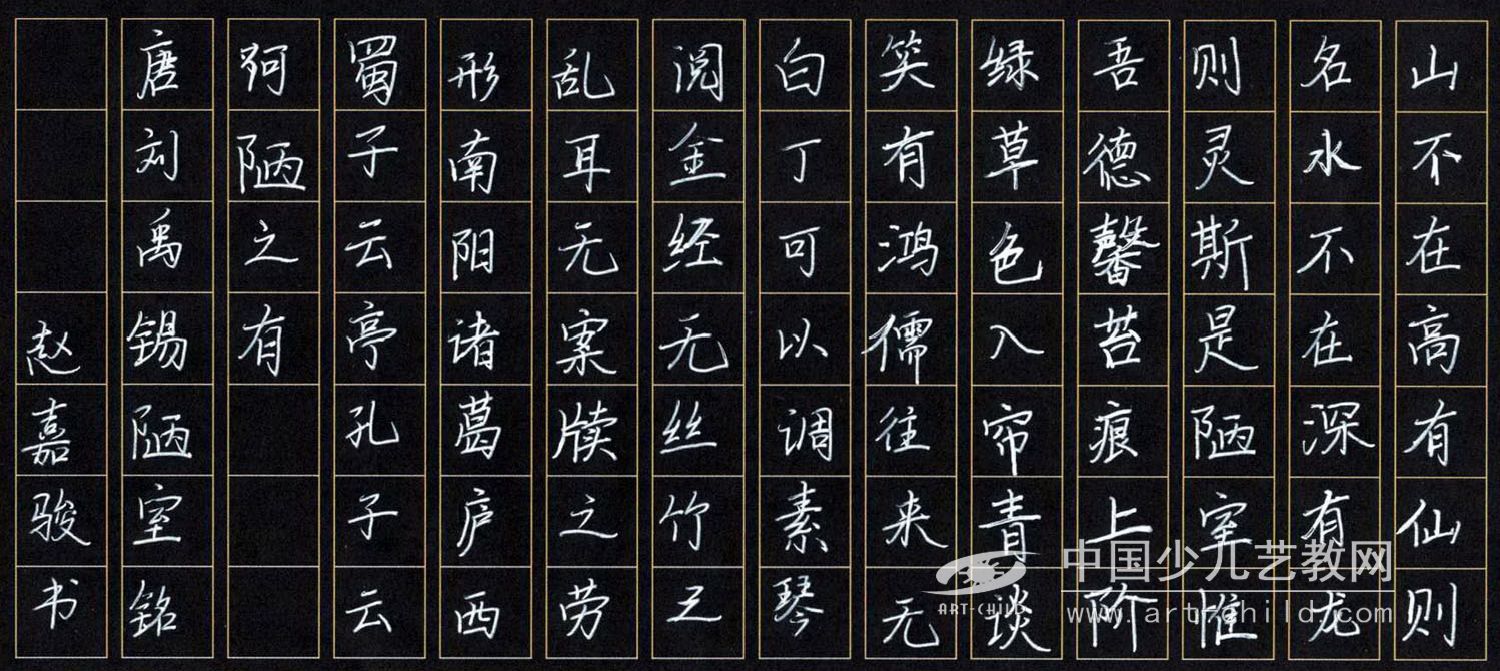 山不在高有仙则
名水不在深有龙
则灵斯是陋室惟
吾德馨苔痕上阶
绿草色入帘青谈
笑有鸿儒往来无
白丁可以调素琴
阅金经无丝竹之
乱耳无案牍之劳
形南阳诸葛庐西
蜀子云亭孔子云
何陋之有
唐刘禹锡陋室铭
赵嘉骏书
中国少儿艺教网
ART-CHILD
www.art-child.com